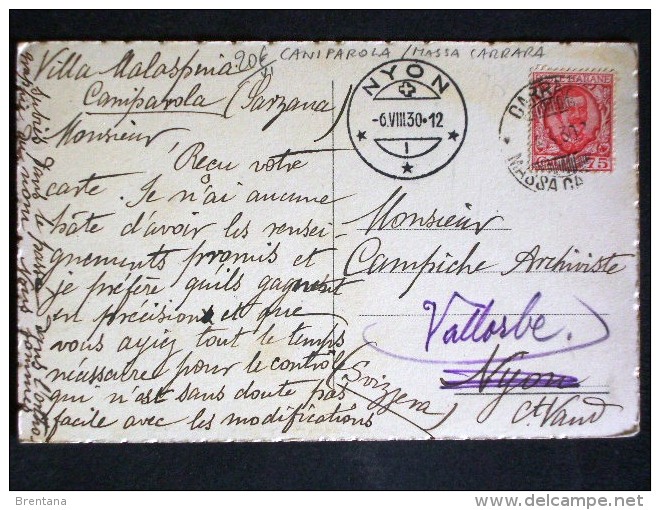 Villa Malaspina
Caniparola (Sarzana)
20£ CANIPAROLA / MASSA CARRARA
Monsieur
Reçu votre
carte. Je n'ai aucune
hâte d'avoir les rensei-
gnements promis et
je préfère qu'ils gagnent
en précision et que
vous ayiez tout le temps
nécessaire pour le contrôle
qui n'est sans doute pas
facile avec les modifications
NYON
-6.VIII.30-12
1
MASSA CA
POSTE ITALIANE
75
Monsieur
Campiche Archiviste
Vallorbe.
Nyon
(Svizzera)
Ct Vaud
Brentana
delcampe.net